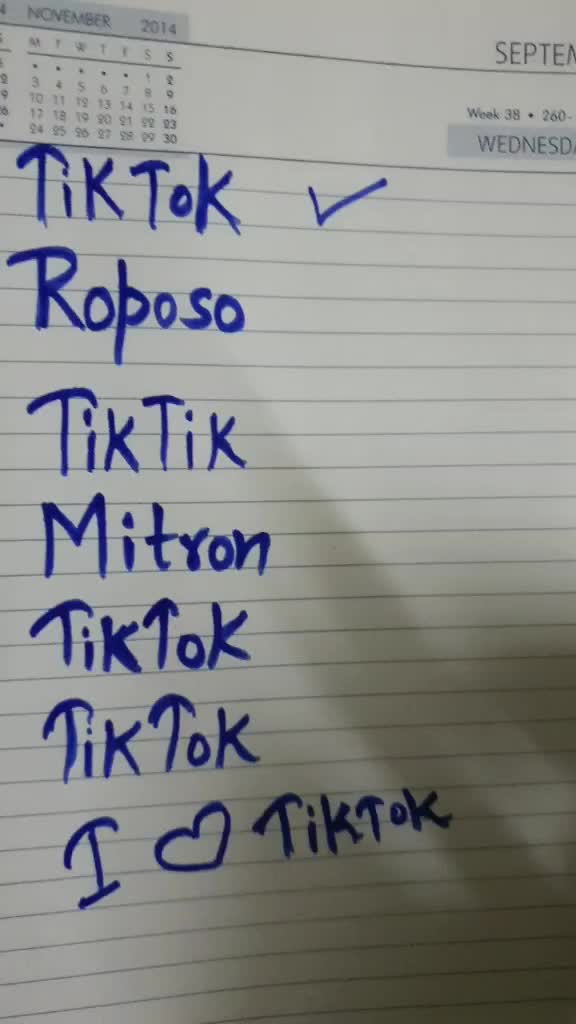 4 NOVEMBER 2014
M T W T F S S
• • • • • 1 2
3 4 5 6 7 8 9
10 11 12 13 14 15 16
17 18 19 20 21 22 23
24 25 26 27 28 29 30
SEPTEM
Week 38 • 260-
WEDNESDA
TikTok ✓
Roposo
TikTik
Mitron
TikTok
TikTok
I ♡ TikTok